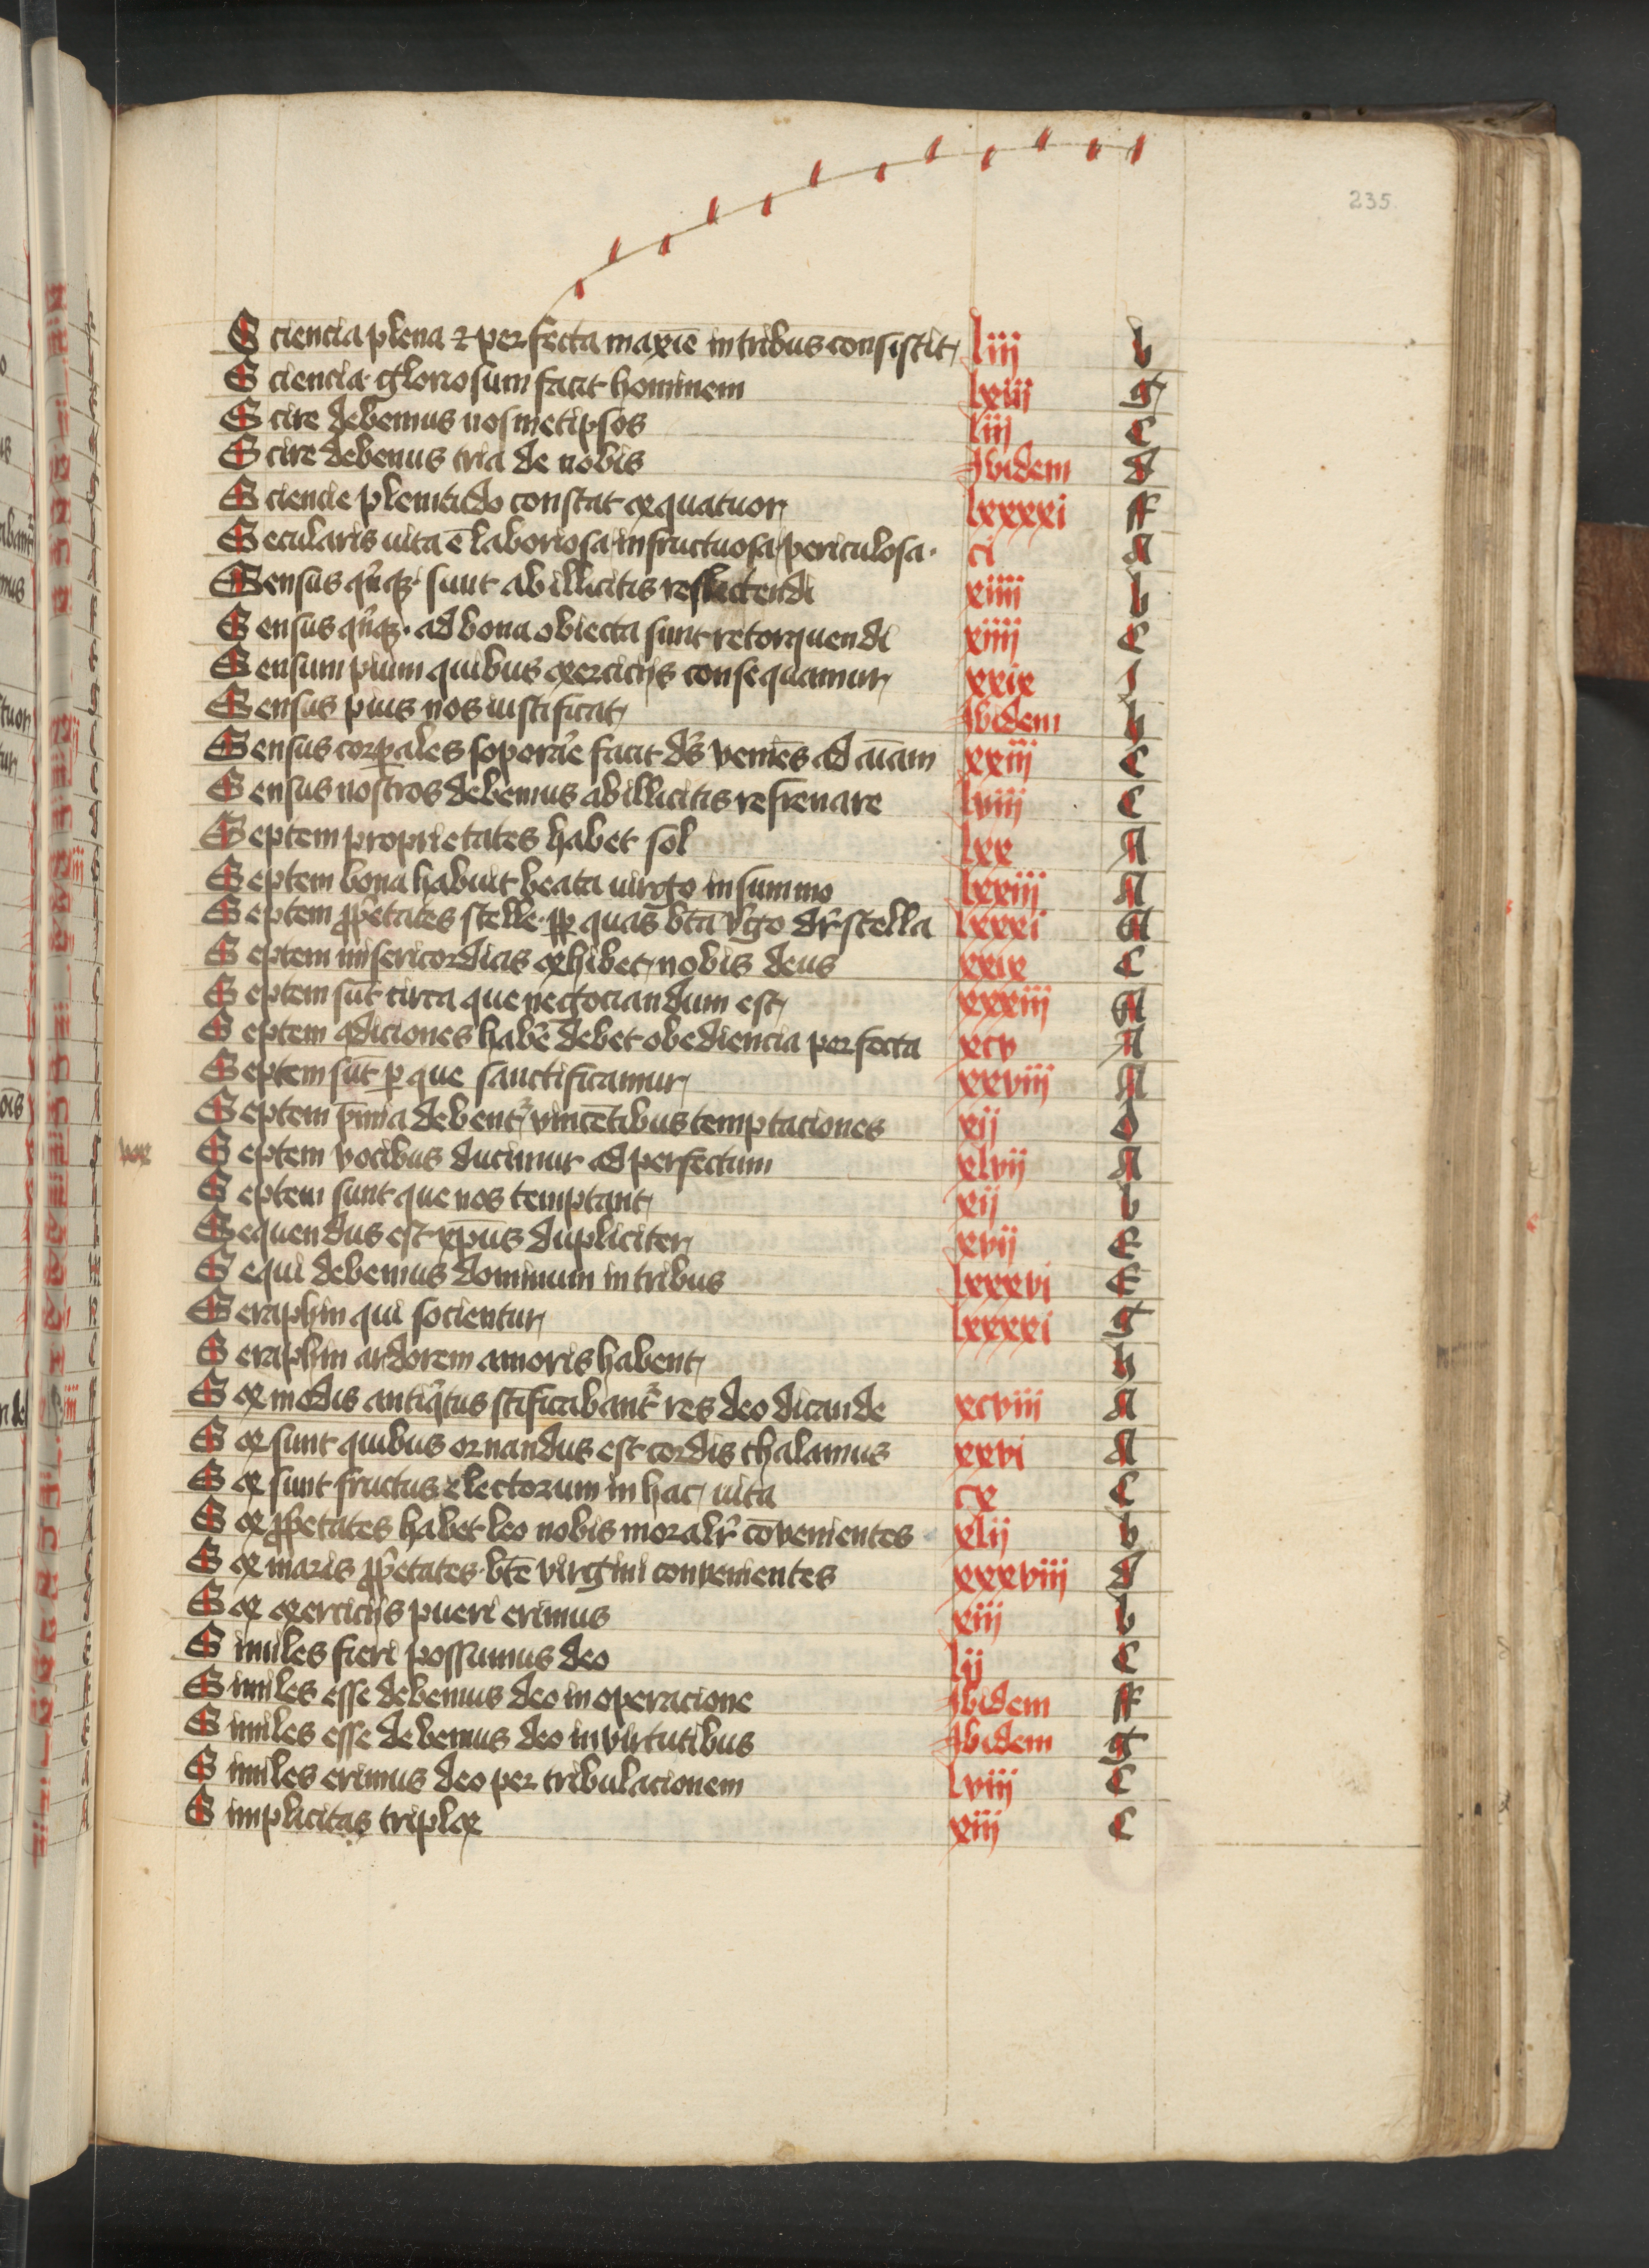 235.
Sciencia plena & perfecta maxīe in tribus consistit liij b
Sciencia gloriosum facit hominem lxiij g
Scire debemus nosmetipsos liij c
Scire debemus tria de nobis Ibidem d
Sciencie plenitudo constat ex quatuor lxxxxi ff
Secularis uita ē laboriosa infructuosa periculosa. ci A
Sensus qͥnqꝫ sunt ab illicitis reflectendi xiiii b
Sensus qͥnqꝫ. ad bona obiecta sunt retorquendi xiiii c
Sensum pium quibus exercicijs consequamur xxix I
Sensus pius nos iustificat Ibidem h
Sensus corꝑales soporaͬe facit dn̄s veniēs ad aīam xxiij c
Sensus nostros debemus ab illicitis refrenare lviij c
Septem proprietates habet sol lxx A
Septem bona habuit beata uirgo in summo lxxiij A
Septem ꝓpͥetates stelle. ꝓpͭ quas btā vͥgo drͬ stella lxxxi A
Septem misericordias exhibet nobis deus xxix c
Septem sūt circa que negociandum est xxxiij A
Septem ↄdiciones habē debet obediencia perfecta xcv A
Septem sūt ꝑ que sanctificamur xxviij A
Septem p̄mia debentᷣ vincētibus temptaciones xij d
vox
Septem vocibus ducimur ad perfectum xlvij A
Septem sunt que nos temptant xij b
Sequendus est xp̄us dupliciter xvij E
Sequi debemus dominum in tribus lxxxvi E
Seraphin qui socientur lxxxxi g
Seraphin ardorem amoris habent h
Sex modis antiqͥtus sc̄ificabantᷣ res deo dicande xcviii A
Sex sunt quibus ornandus est cordis thalamus xxvi A
Sex sunt fructus electorum in hac uita cx c
Sex ꝓpͥetates habet leo nobis moralrͥ cōvenientes xlij b
Sex maris ꝓpͥetates. btē virgini convenientes xxxviij d
Sex exercicijs pueri erimus xiij b
Similes fieri possumus deo lij c
Similes esse debemus deo in operacione Ibidem ff
Similes esse debemus deo in virtutibus Ibidem g
Similes erimus deo per tribulacionem lviij c
Simplicitas triplex xiij c